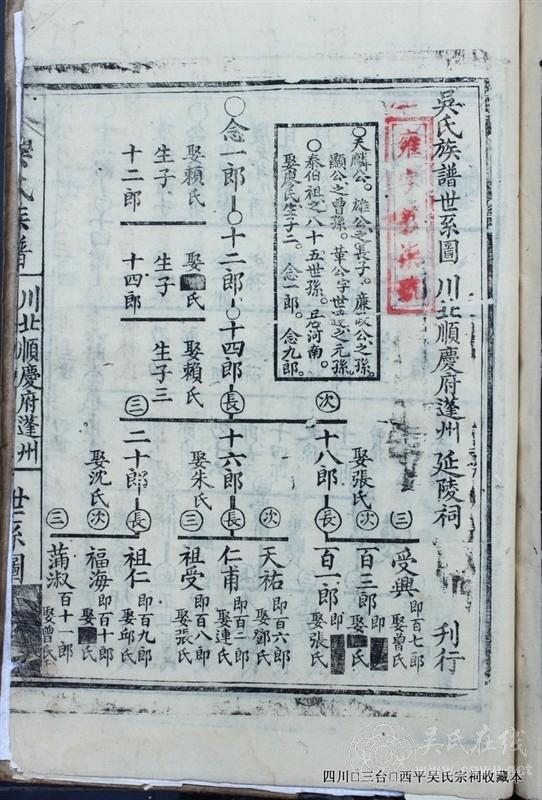 吳氏族譜世系圖 川北順慶府蓬州延陵祠 刊行
○天麟公。雄公之長子。廉政公之孫。
顯公之曾孫。華公字世之元孫。
○泰伯祖之八十五世孫。居河南。
娶廖氏生子二。念一郎。念九郎。
○念一郎
娶賴氏
生子
十二郎
○十二郎
娶氏
生子
十四郎
○十四郎
娶賴氏
生子三
次
長
三
十八郎
娶張氏
十六郎
娶朱氏
二十郎
娶沈氏
三
次
長
次
長
三
長
次
三
受興 即百七郎 娶曾氏
百三郎 即 娶氏
百一郎 即 娶張氏
天祐 即百六郎 娶鄧氏
仁甫 即百二郎 娶連氏
祖受 即百八郎 娶張氏
祖仁 即百九郎 娶邱氏
福海 即百十郎 娶氏
蒲淑 百十一郎 娶曾氏
氏族譜 川北順慶府蓬州 世系圖
吴氏在线
四川□三台□西平吴氏宗祠收藏本